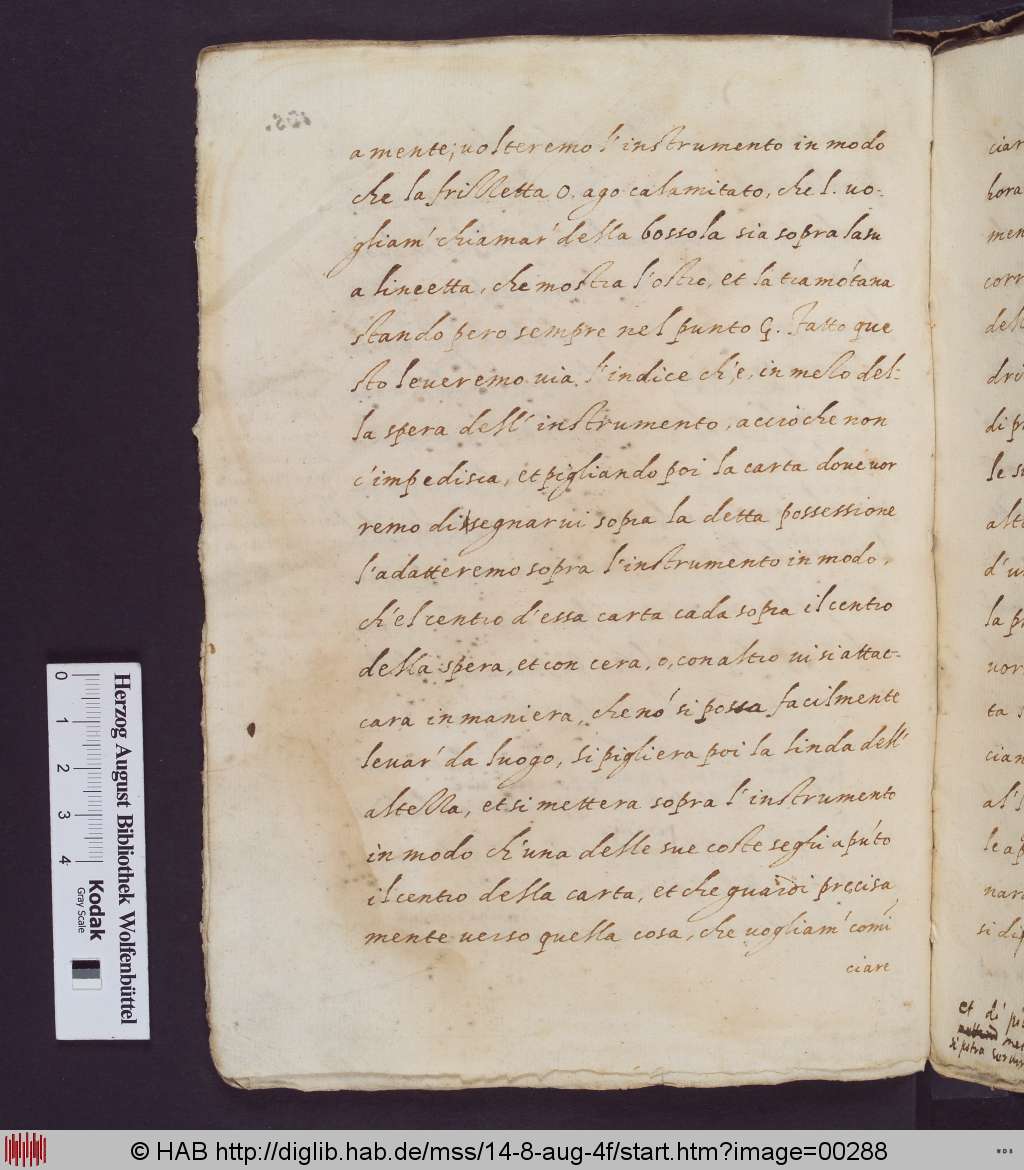 amente; uolteremo l'instrumento in modo
che la frilletta o. ago calamitato, che l. uo-
gliam' chiamar' della bossola sia sopra lasu
a lineetta, che mostra l'ostro, et la tramótana
stando pero sempre nel punto G. Fatto que
sto leueremo uia l'indice ch'e, in mezo del-
la spera dell' instrumento, accioche non
c'impedisca, et pigliando poi la carta doue uor
remo disegnarui sopra la detta possessione
l'adatteremo sopra l'instrumento in modo,
ch'el centro d'essa carta cada sopra il centro
della spera, et con cera, o, con altro ui si attac-
cara in maniera, che nó si possa facilmente
leuar' da luogo, si pigliera poi la linda dell'
altella, et si mettera sopra l'instrumento
in modo ch'una delle sue coste seghi apúto
il centro della carta, et che guardi precisa
mente uerso quella cosa, che uogliam' comí
ciare
ciar
hora
men
corr
dell
dri
di p
le s
alt
d'u
la p
uor
ta
cian
al'
le ap
nar
si di
et di
si potra
Herzog August Bibliothek Wolfenbüttel
0 1 2 3 4
Kodak
Gray Scale
© HAB http://diglib.hab.de/mss/14-8-aug-4f/start.htm?image=00288